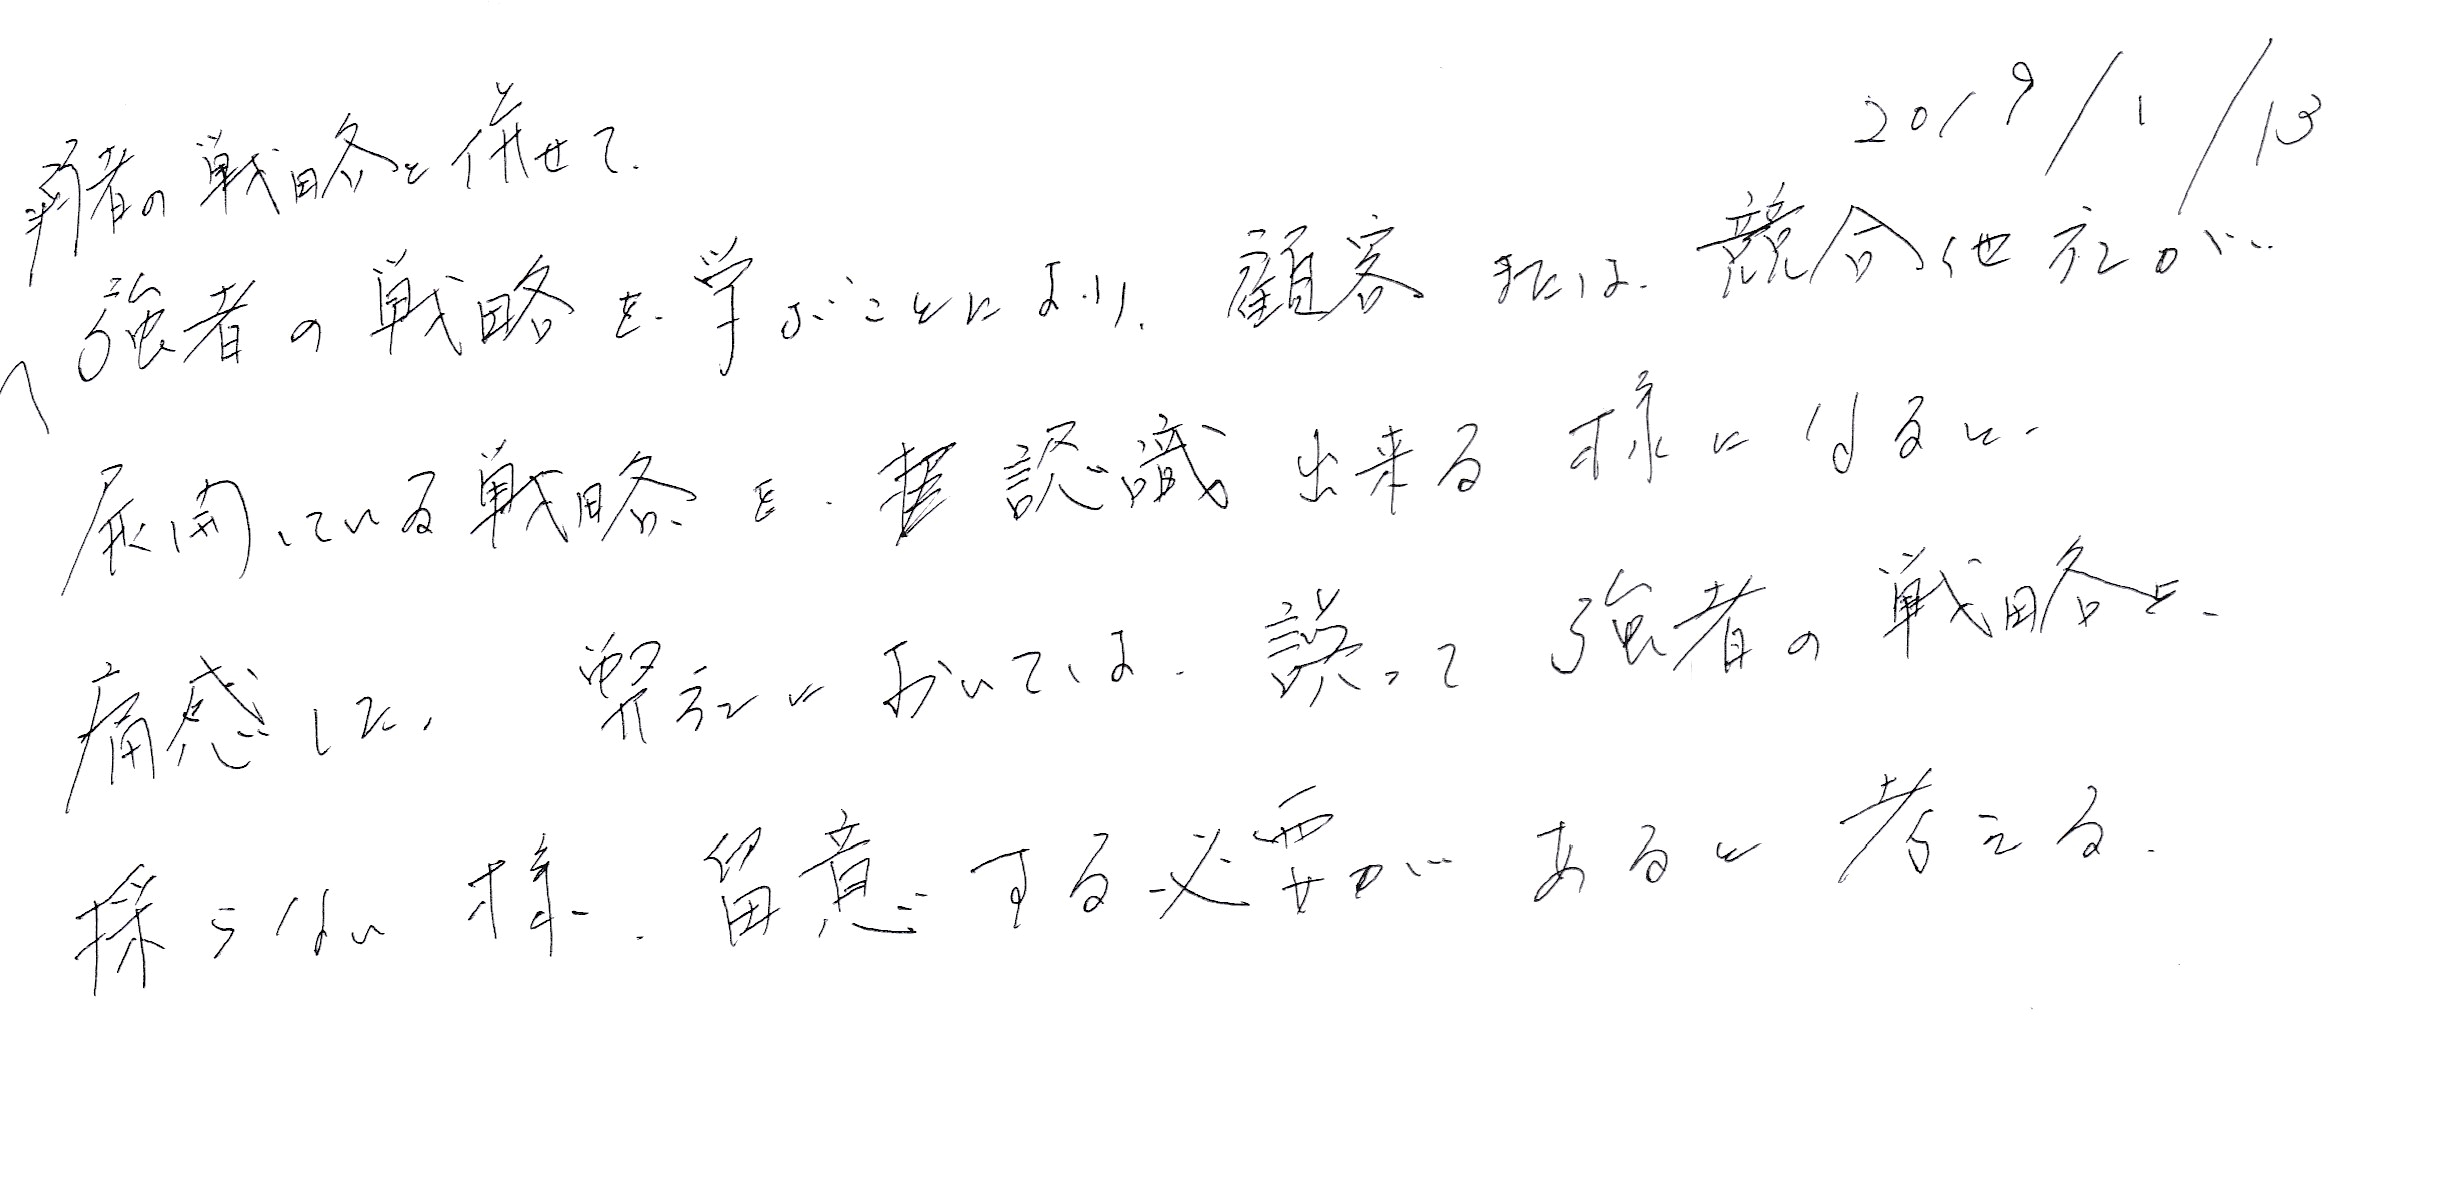 2019/1/13
弱者の戦略と併せて、
強者の戦略を、学ぶことにより、顧客または、競合他社が
展開している戦略を、認識出来る様になると、
痛感した。弊社においては、誤って強者の戦略を、
採らない様、留意する必要があると考える。